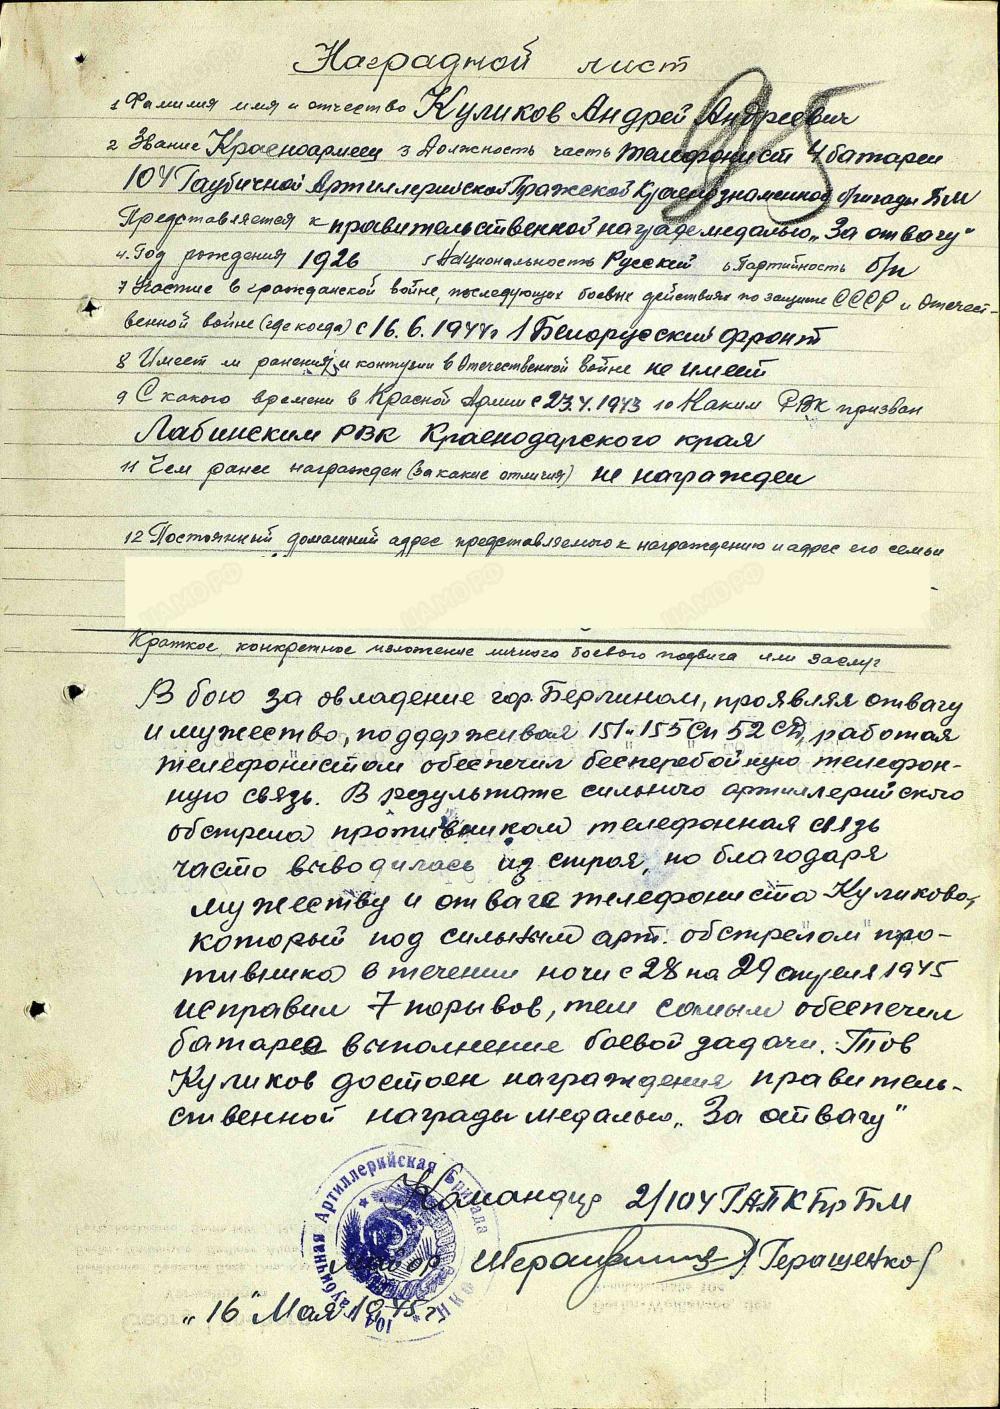 Наградной лист
1 Фамилия имя и отчество Куликов Андрей Андреевич
2 Звание Красноармеец 3 Должность часть телефонист 4 батареи
104 Гаубичной Артиллерийской Пражской Краснознаменной бригады БМ
Представляется к правительственной награде медалью „За отвагу"
4. Год рождения 1926 5 Национальность Русский 6 Партийность б/п
7 Участие в гражданской войне, последующих боевых действиях по защите СССР и Отечест-
венной войне (где когда) с 16.6.1944г 1 Белорусский фронт
8 Имеет ли ранения и контузии в Отечественной войне не имеет
9 С какого времени в Красной Армии с 23.4.1943 10 Каким РВК призван
Лабинским РВК Краснодарского края
11 Чем ранее награжден (за какие отличия) не награжден
12 Постоянный домашний адрес представляемого к награждению и адрес его семьи
Краткое, конкретное изложение личного боевого подвига или заслуг
В бою за овладение гор. Берлином, проявляя отвагу
и мужество, поддерживая 151 и 155 Сп 52 СД, работая
телефонистом обеспечил бесперебойную телефон-
ную связь. В результате сильного артиллерийского
обстрела противником телефонная связь
часто выводилась из строя, но благодаря
мужеству и отваге телефониста Куликова,
который под сильным арт. обстрелом про-
тивника в течении ночи с 28 на 29 апреля 1945
исправил 7 порывов, тем самым обеспечил
батарее выполнение боевой задачи. Тов
Куликов достоен награждения правитель-
ственной награды медалью „За отвагу"
Командир 2/104 ГАПКБрБМ
Майор Геращенко
„16" Мая 1945 г.
104 Гаубичная Артиллерийская Бригада
НКО